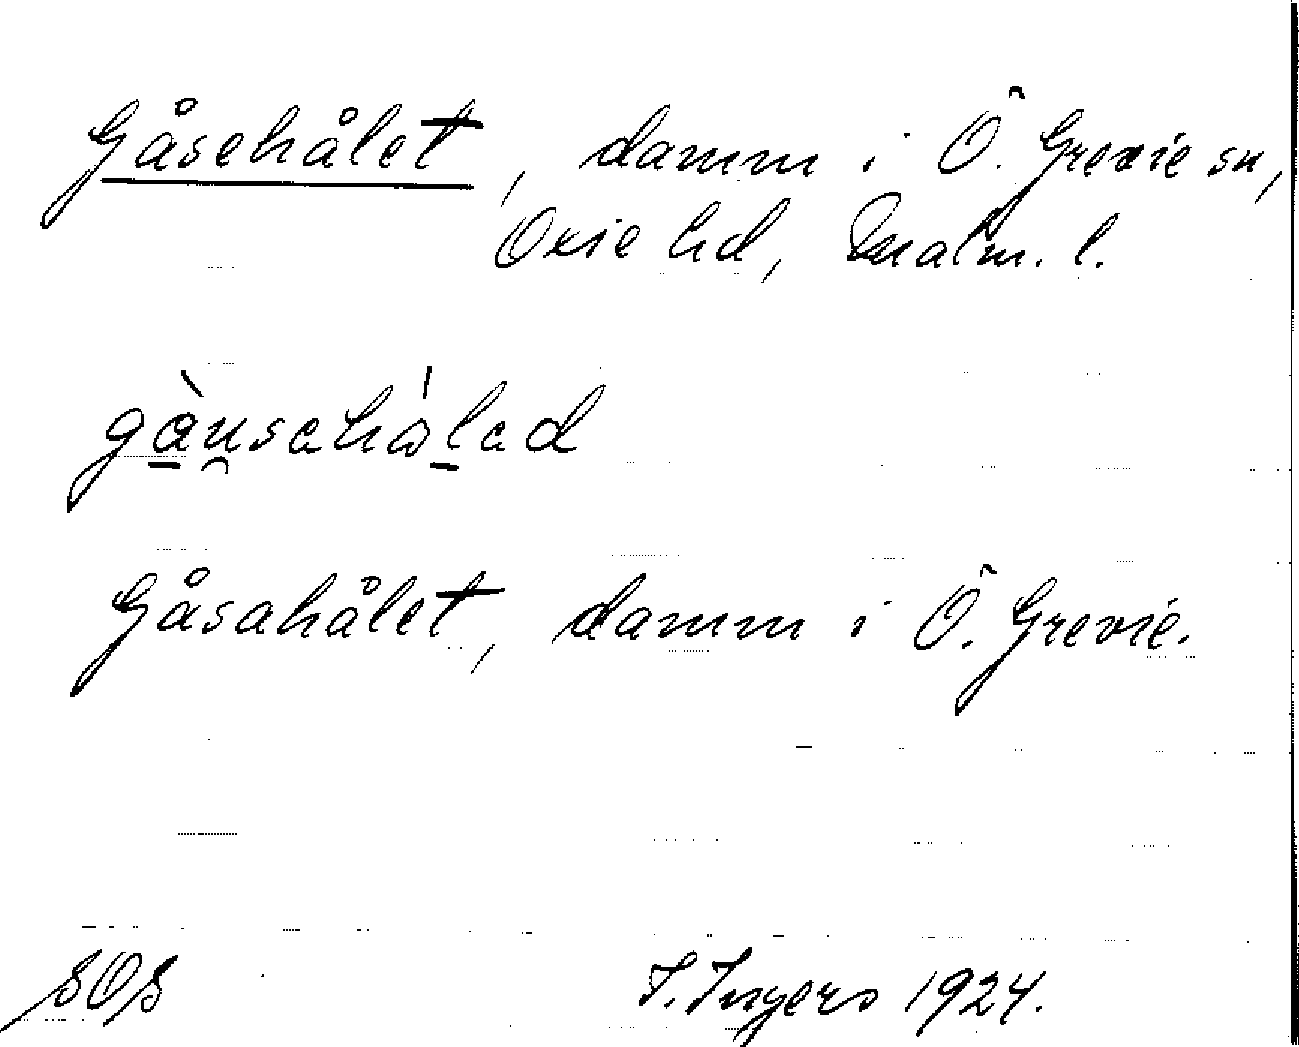 Gåsehålet, damm i Ö. Grevie sn,
Oxie hd, Malm. l.
gàu̯sahålad
Gåsahålet, damm i Ö. Grevie.
SOS
I. Ingers 1924.